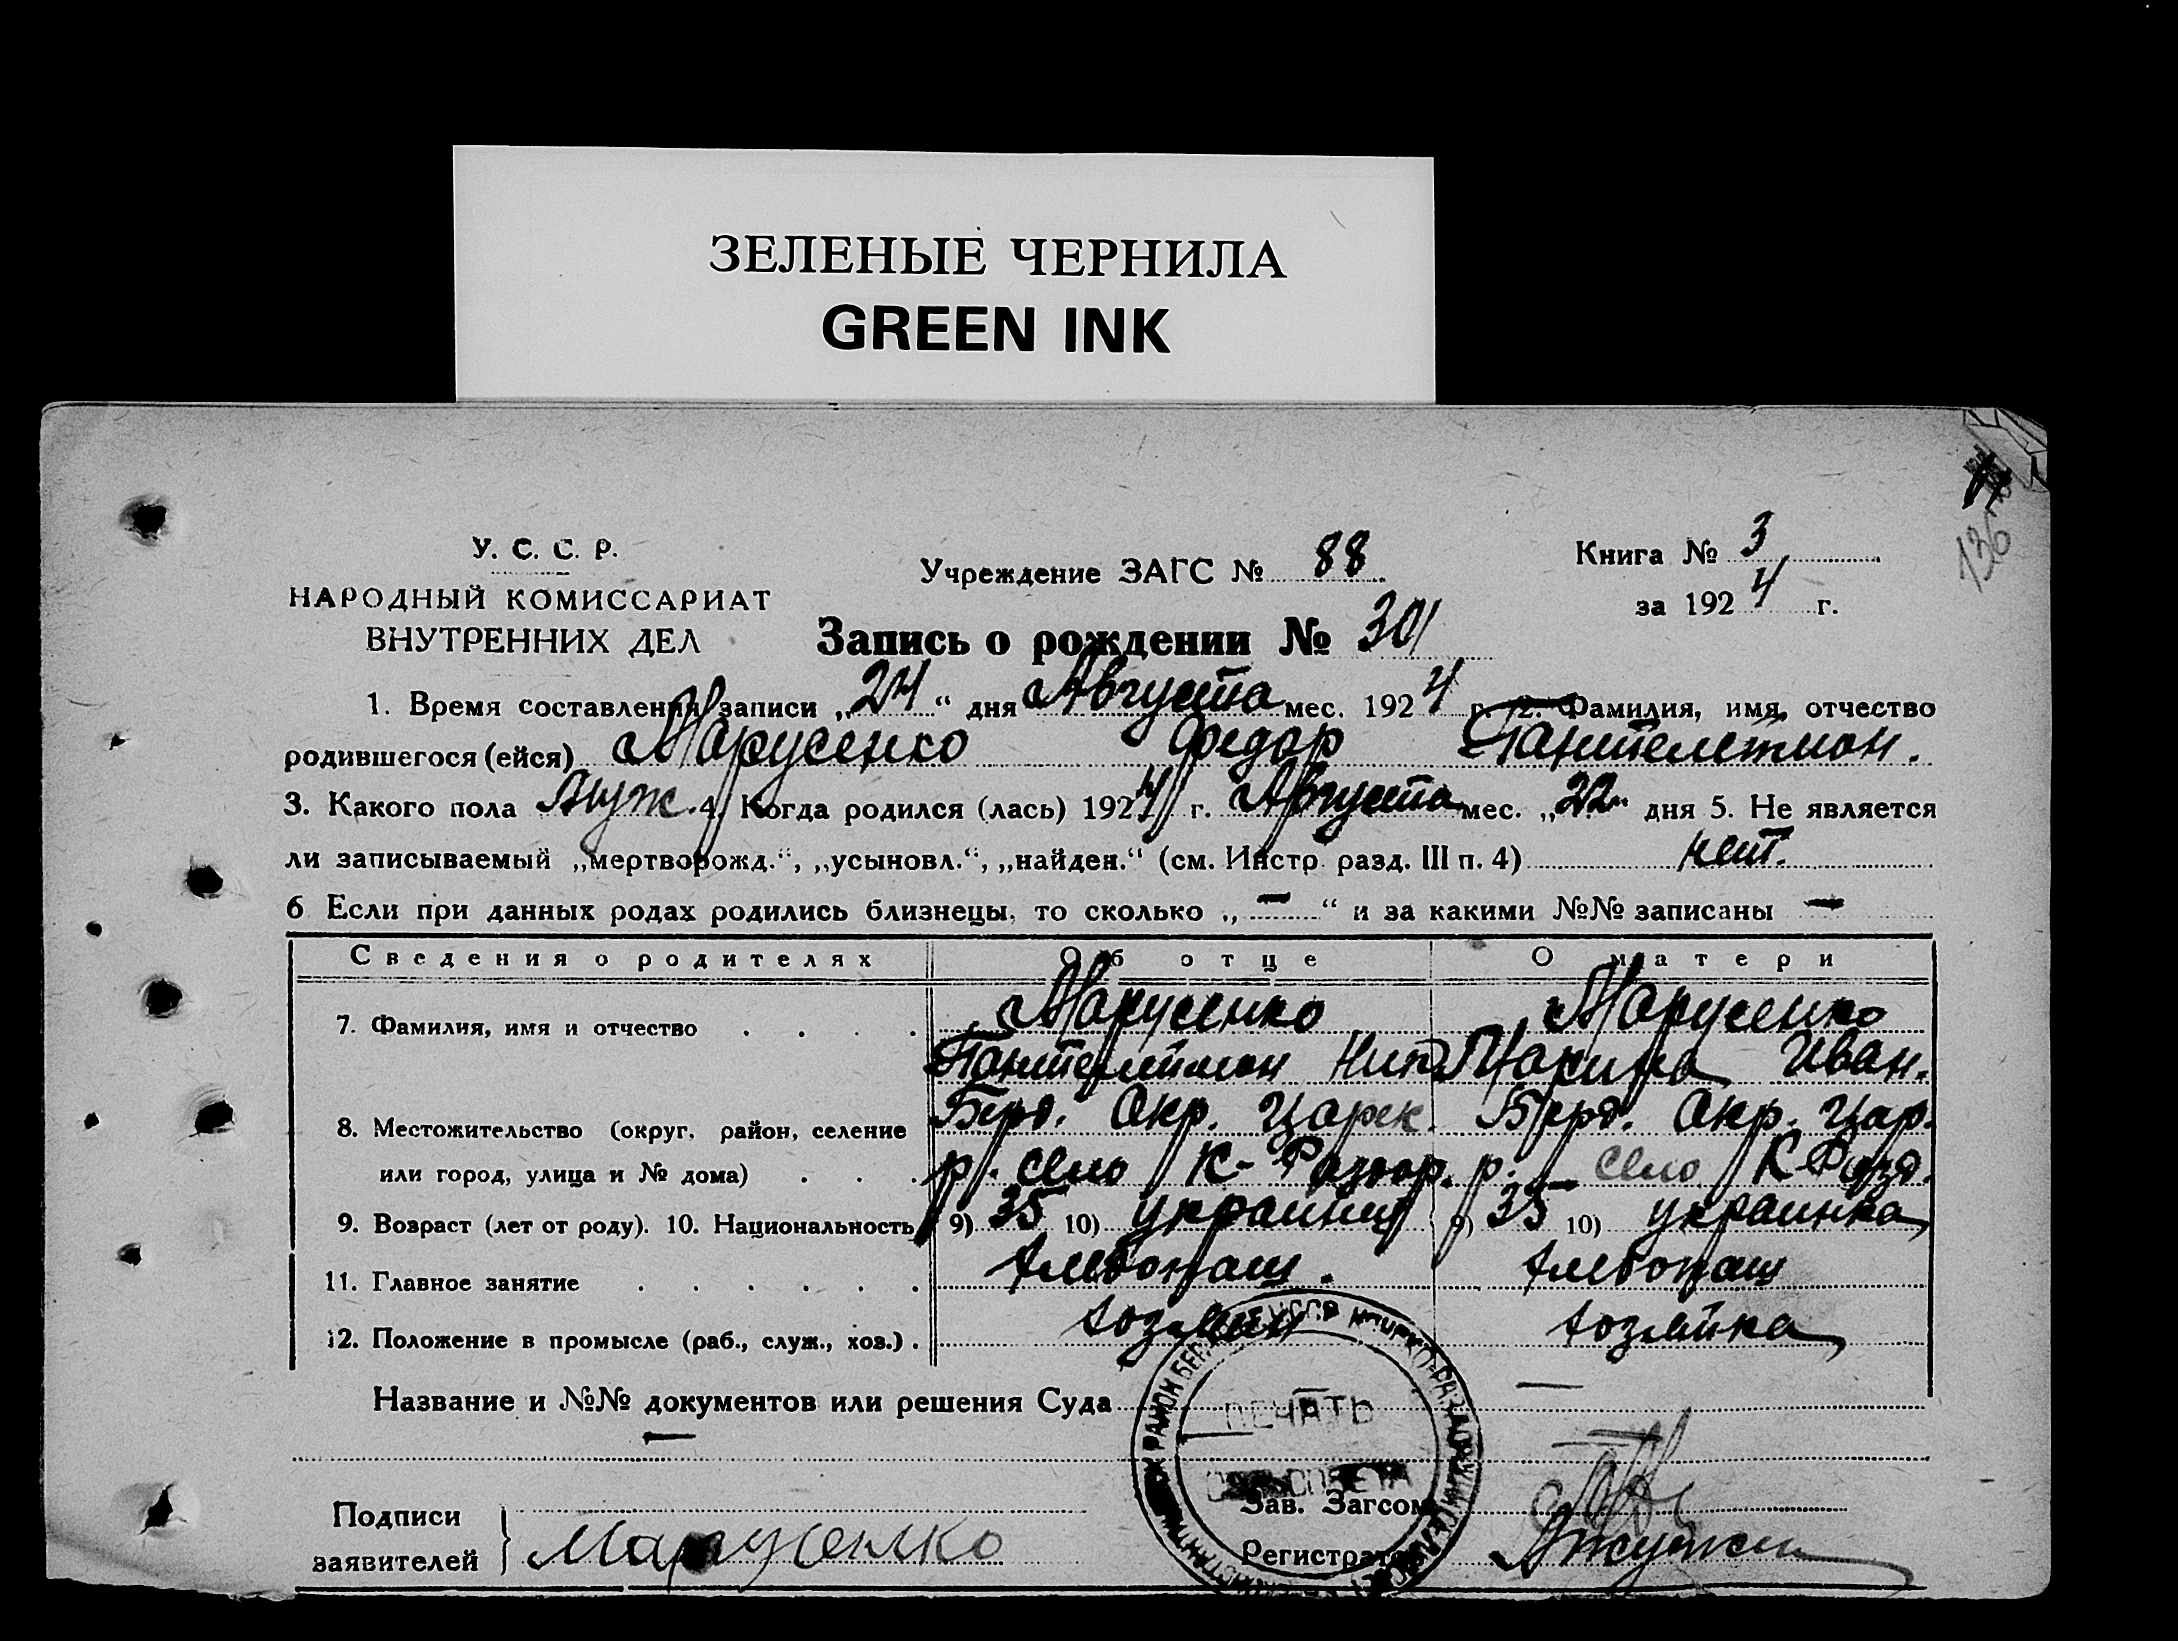 ЗЕЛЕНЫЕ ЧЕРНИЛА
GREEN INK
136
У. С. С. Р.
НАРОДНЫЙ КОМИССАРИАТ
ВНУТРЕННИХ ДЕЛ
Учреждение ЗАГС № 88
Книга № 3
за 1924 г.
Запись о рождении № 301
1. Время составления записи „24“ дня Августа мес. 1924 г. 2. Фамилия, имя, отчество
родившегося (ейся) Марусенко Федор Пантелемон.
3. Какого пола Муж. 4. Когда родился (лась) 1924 г. Августа мес. „22“ дня 5. Не является
ли записываемый „мертворожд.“, „усыновл.“, „найден.“ (см. Инстр. разд. III п. 4) нет.
6 Если при данных родах родились близнецы, то сколько „—“ и за какими №№ записаны —
Сведения о родителях Об отце О матери
7. Фамилия, имя и отчество . . . . Марусенко Марусенко
Пантелеймон Ник. Иван.
8. Местожительство (округ, район, селение Берд. Окр. Царек. Берд. Окр. Цар.
или город, улица и № дома) . . . р. село К-Раздор. р. село К-Разд.
9. Возраст (лет от роду). 10. Национальность 9) 35 10) украинец 9) 35 10) украинка
11. Главное занятие . . . . . . хлебопаш. хлебопаш
12. Положение в промысле (раб., служ., хоз.) . хозяин хозяйка
Название и №№ документов или решения Суда —
—
ПЕЧАТЬ
СЕЛЬСОВЕТА
Подписи
заявителей } Марусенко
Зав. Загсом
Регистратор